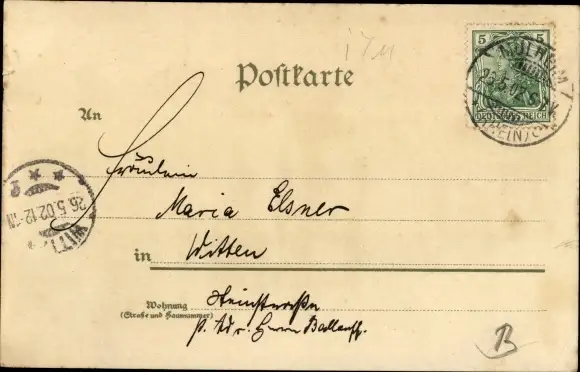 5 5
DEUTSCHES REICH
MÜLHEIM
(RHEIN)
174
Postkarte
An
Fräulein
Maria Elsner
in Witten
Wohnung
(Straße und Hausnummer)
Steinstrasse
p. Ad. v. Herrn
26.5.02.12-1N
WITT
B